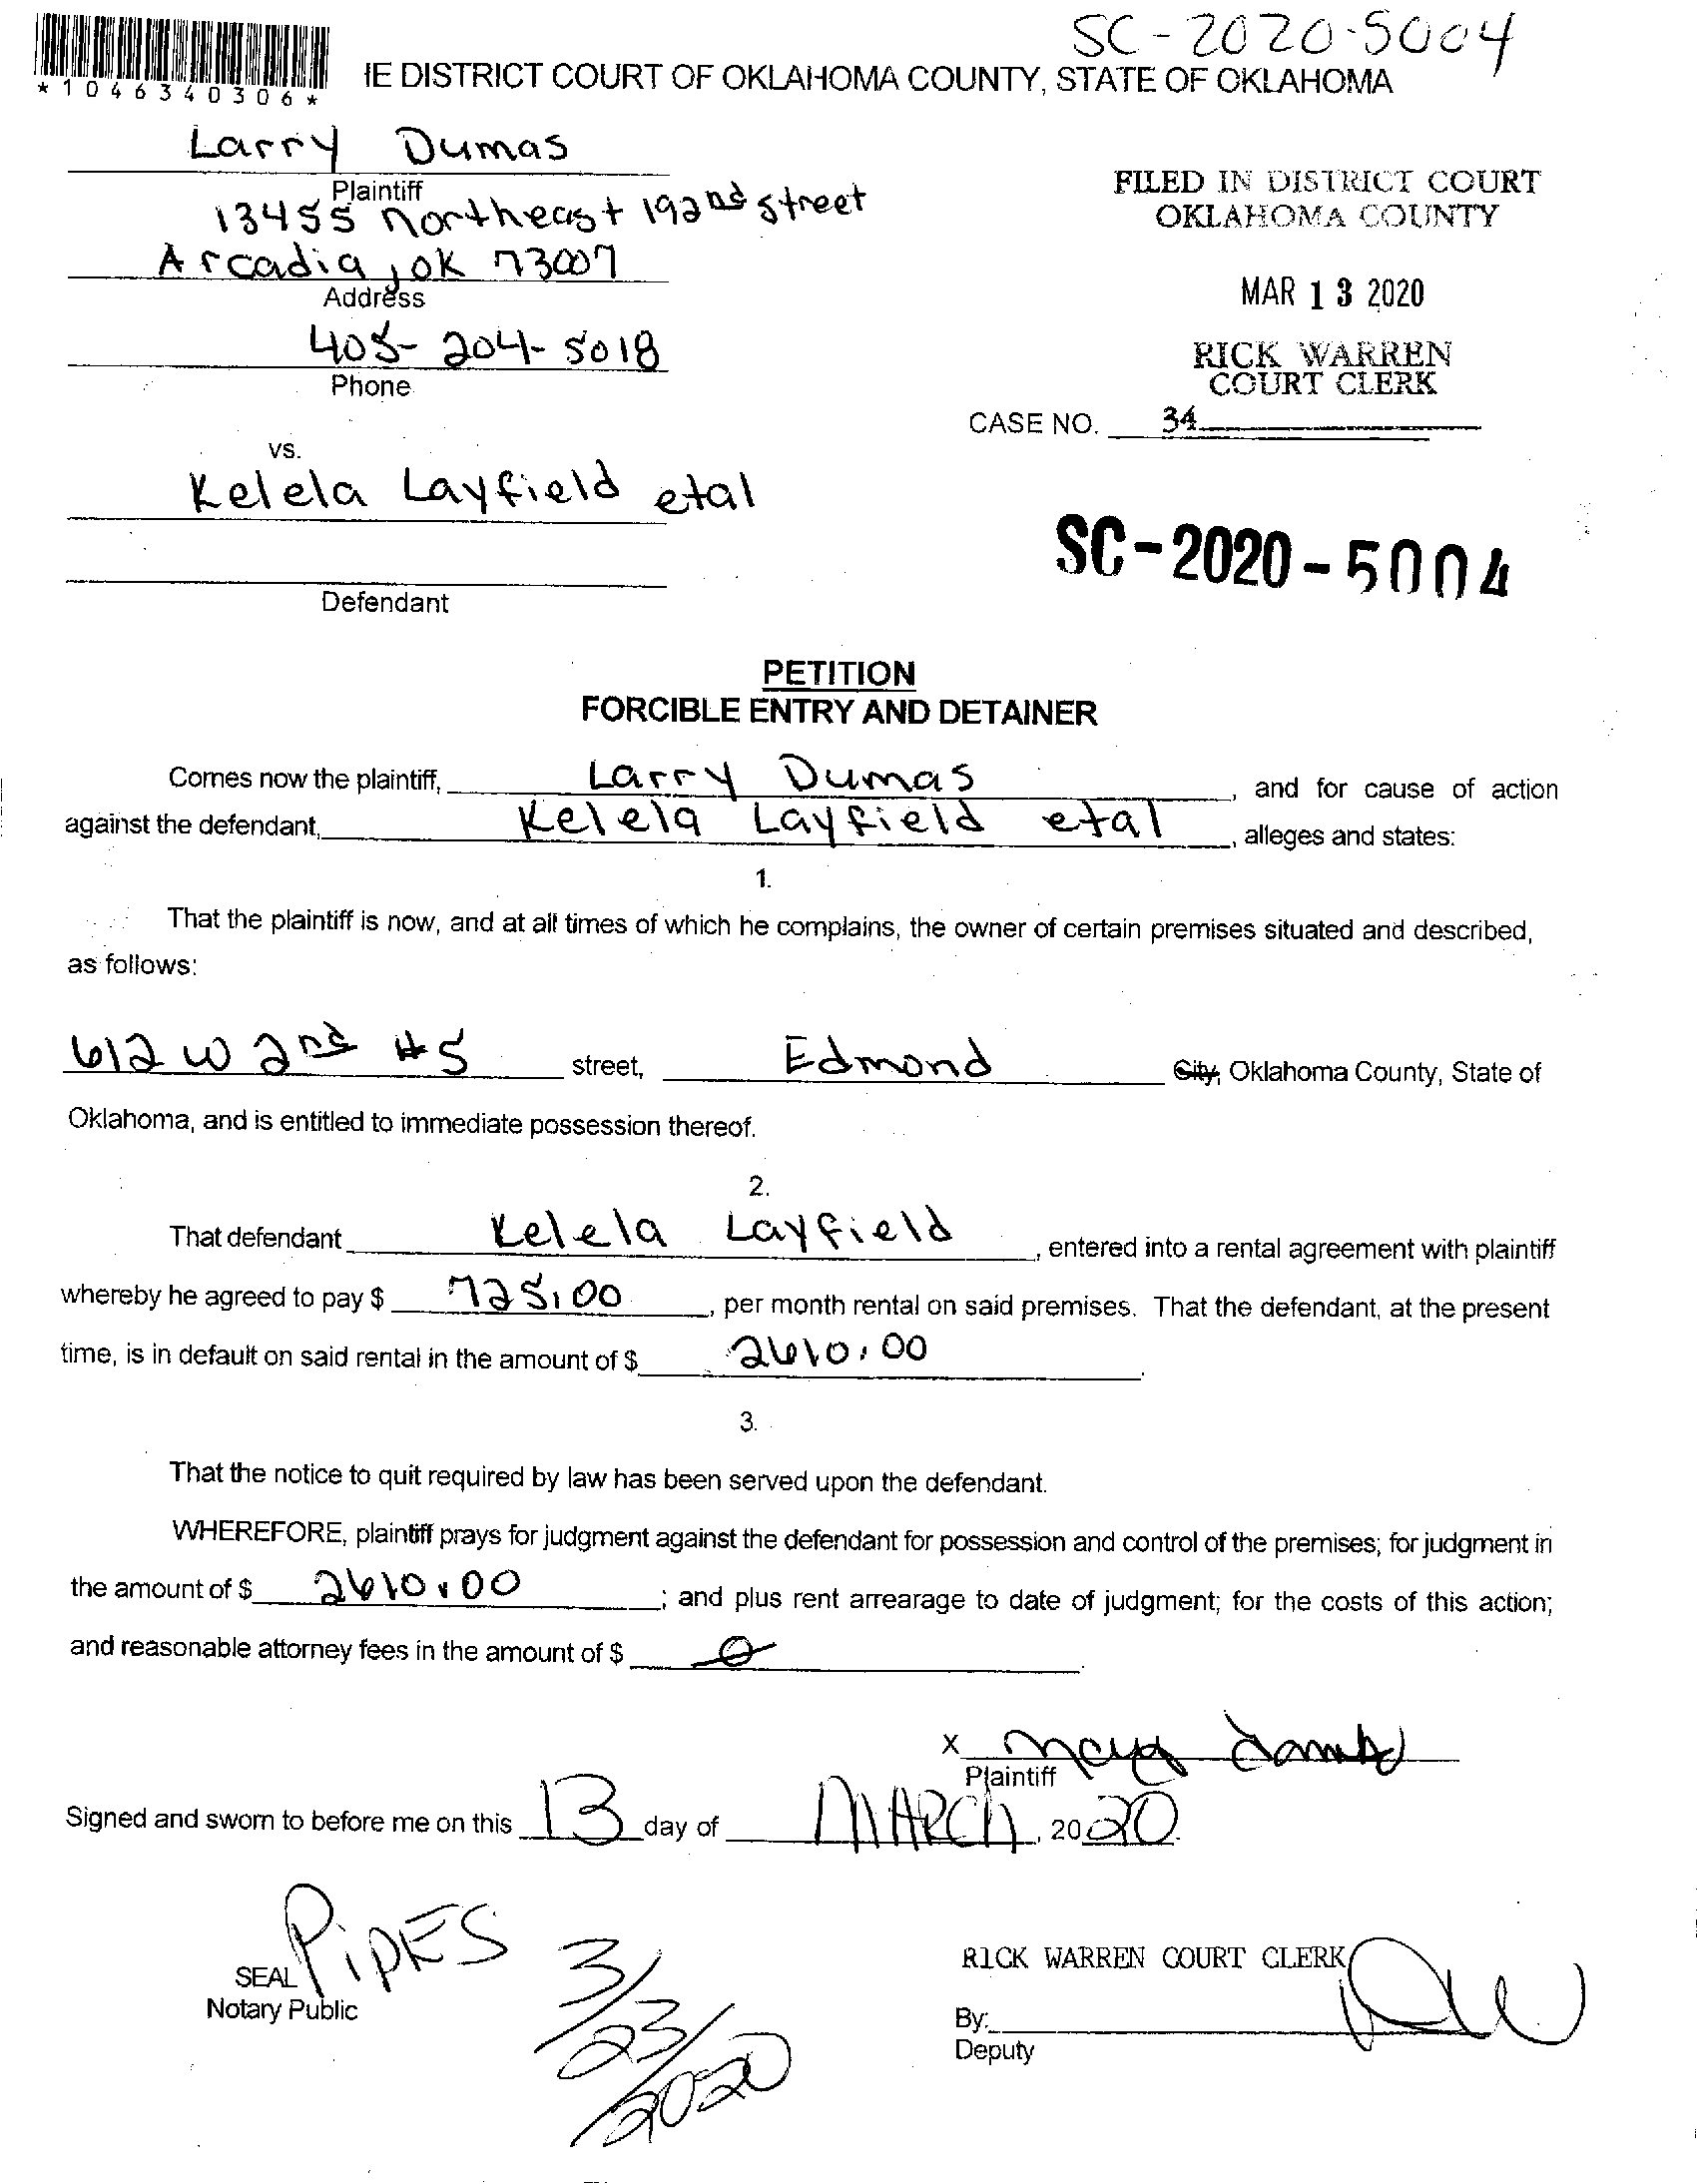 SC-2020-5004
*1046340306*
IE DISTRICT COURT OF OKLAHOMA COUNTY, STATE OF OKLAHOMA
Larry Dumas
Plaintiff
13455 northeast 192nd street
Arcadia, OK 73007
Address
405-204-5018
Phone
FILED IN DISTRICT COURT
OKLAHOMA COUNTY
MAR 13 2020
RICK WARREN
COURT CLERK
CASE NO. 34
vs.
Kelela Layfield etal
Defendant
SC-2020-5004
PETITION
FORCIBLE ENTRY AND DETAINER
Comes now the plaintiff, Larry Dumas, and for cause of action
against the defendant, Kelela Layfield etal, alleges and states:
1.
That the plaintiff is now, and at all times of which he complains, the owner of certain premises situated and described,
as follows:
612 W 2nd #5 street, Edmond City, Oklahoma County, State of
Oklahoma, and is entitled to immediate possession thereof.
2.
That defendant Kelela Layfield, entered into a rental agreement with plaintiff
whereby he agreed to pay $ 725.00, per month rental on said premises. That the defendant, at the present
time, is in default on said rental in the amount of $ 2610.00.
3.
That the notice to quit required by law has been served upon the defendant.
WHEREFORE, plaintiff prays for judgment against the defendant for possession and control of the premises; for judgment in
the amount of $ 2610.00; and plus rent arrearage to date of judgment; for the costs of this action;
and reasonable attorney fees in the amount of $ 0.
X
Plaintiff
Signed and sworn to before me on this 13 day of MARCH, 2020.
PiPES
SEAL
Notary Public
3/23/2020
RICK WARREN COURT CLERK
By:
Deputy